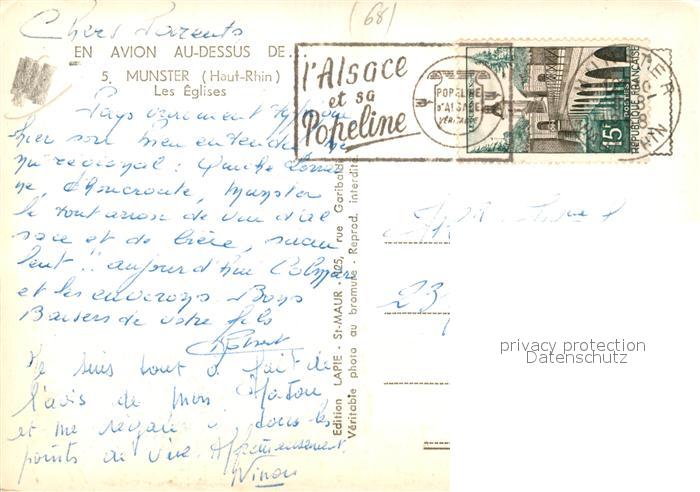 (68)
Chers Parents
EN AVION AU-DESSUS DE...
5. MUNSTER (Haut-Rhin)
Les Églises
l'Alsace
et sa
Popeline
POPELINE
D'ALSACE
VÉRITABLE
15F
POSTES
REPUBLIQUE FRANÇAISE
Pays vraiment typique
hier soir bien entendu me
nu regional: Quiche Lorrai
ne, Choucroute, Munster
le tout arrosé de vin d'Al
sace et de bière, succu
lent!! aujourd'hui Colmar
et les environs. Bons
Baisers de votre fils
Robert
Je suis tout à fait de
l'avis de mon
et me régale tous les
points de vue. Affectueusement
Ninou
Edition LAPIE - St-MAUR - 125, rue Garibaldi
Véritable photo au bromure - Reprod. interdite.
23
privacy protection
Datenschutz